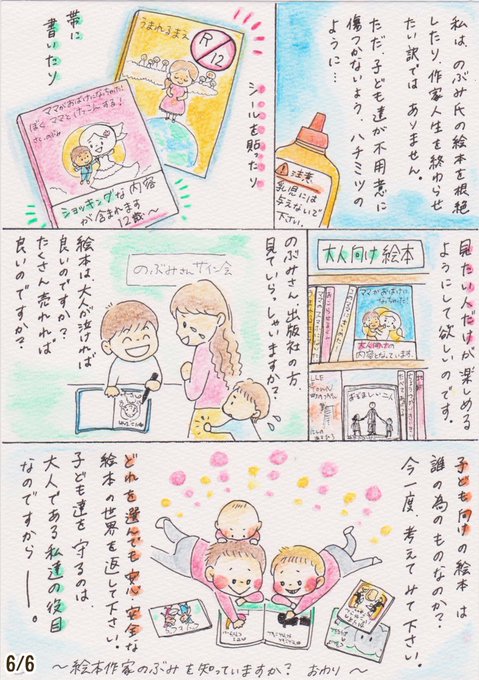 私は、のぶみ氏の絵本を根絶
したり、作家人生を終わらせ
たい訳では ありません。
ただ、子ども達が不用意に
傷つかないよう、ハチミツの
ように…
注意
乳児には
与えないで
下さい。
シールを貼ったり
うまれるまえ
R
12
帯に
書いたり
ママがおばけになっちゃった!
ぼく ママとけっこんする!
さく・のぶみ
ショッキングな内容
が含まれます
12歳〜
見たい人だけが 楽しめる
ようにして欲しいのです。
大人向け絵本
ママがおばけ
になっちゃった!
大人向けの
内容となっています。
のぶみさん、出版社の方、
見ていらっしゃいますか?
のぶみさん サイン会
絵本は大人が泣ければ
良いのですか?
たくさん売れれば
良いのですか?
子ども向けの絵本 は
誰の為のものなのか?
今一度 考えてみて下さい。
どれを選んでも安心安全な
絵本の世界を返して下さい。
子ども達を 守るのは、
大人である私達の役目
なのですから―。
6/6
〜絵本作家のぶみを知っていますか? おわり〜